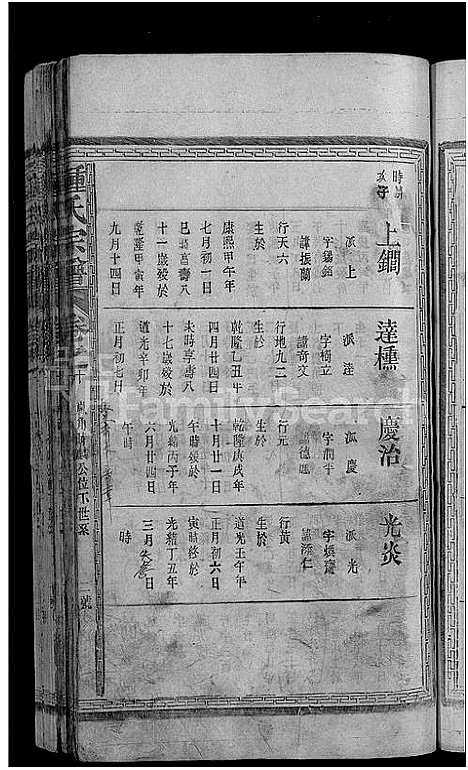 上鐧
派上
字錫鐧
諱振蘭
行天六
生於
康熙甲午年
七月初一日
巳時享壽八
十一歲歿於
乾隆甲寅年
九月十四日
達櫄
派達
字梅立
諱奇文
行地九二
生於
乾隆乙丑年
四月廿四日
未時享壽八
十七歲歿於
道光辛卯年
正月初七日
慶治
派慶
字潤平
諱德
行元
生於
乾隆庚戌年
十月廿一日
午時歿於
光緒丙子年
六月廿四日
午時
光炎
派光
字
諱添仁
行黃
生於
道光壬午年
正月初六日
寅時終於
光緒丁丑年
三月 日
時
鍾氏宗譜
卷之
公位下世系
FamilySearch